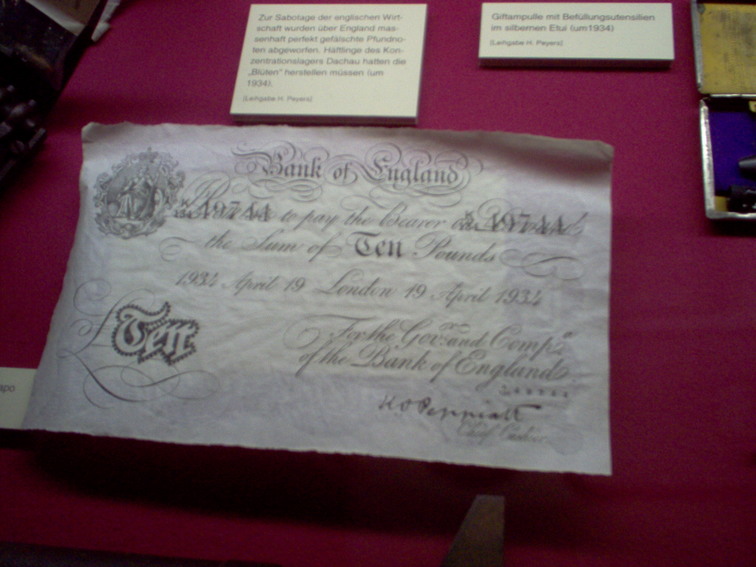 Zur Sabotage der englischen Wirt-
schaft wurden über England mas-
senhaft perfekt gefälschte Pfundno-
ten abgeworfen. Häftlinge des Kon-
zentrationslagers Dachau hatten die
„Blüten" herstellen müssen (um
1934).
[Leihgabe H. Peyers]
Giftampulle mit Befüllungsutensilien
im silbernen Etui (um1934)
[Leihgabe H. Peyers]
Bank of England
to pay the Bearer on Demand
the Sum of Ten Pounds
1934 April 19 London 19 April 1934
£Ten
For the Govr. and Compa.
of the Bank of England
K O Peppiatt
Chief Cashier